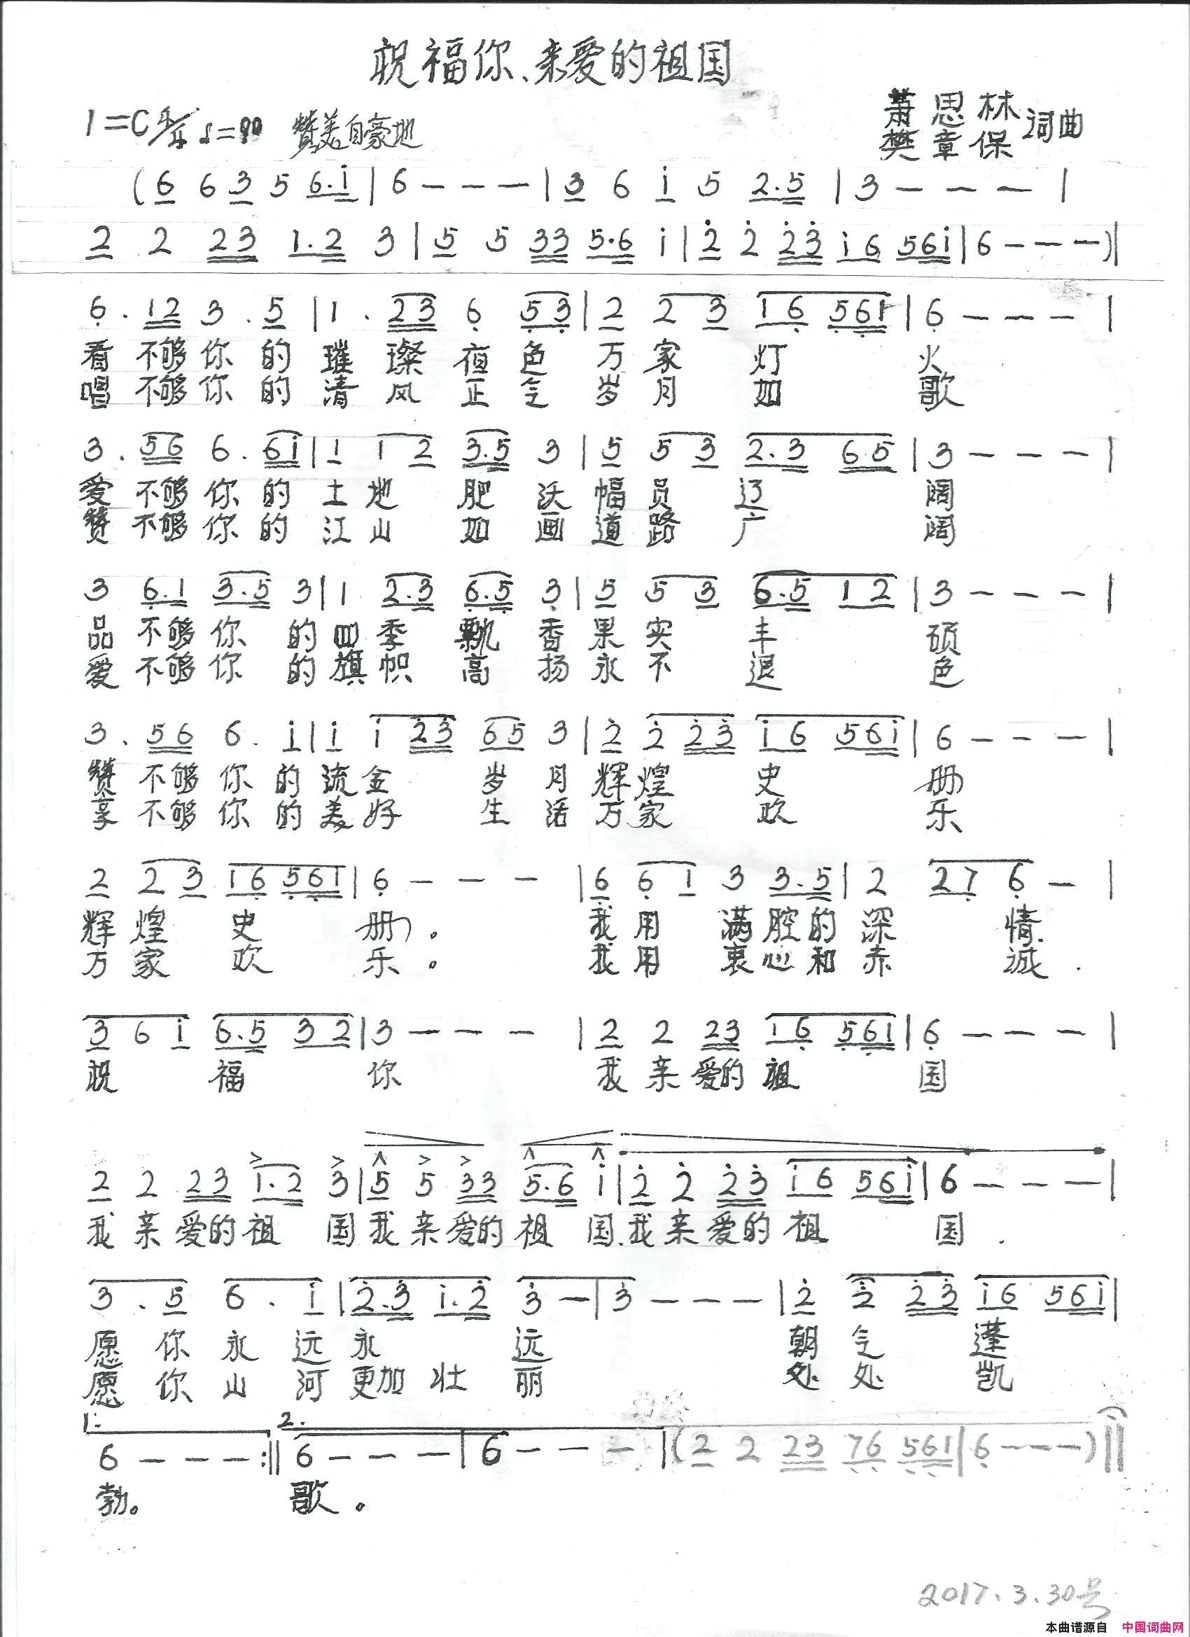 祝福你、亲爱的祖国
1=C 4/4 ♩=90 赞美自豪地
萧思林
樊章保 词曲
(6 6 3 5 6·i | 6 — — — | 3 6 i 5 2·5 | 3 — — — |
2 2 23 1·2 3 | 5 5 33 5·6 i | 2 2 23 i6 56i | 6 — — — )|
6· 12 3·5 | 1· 23 6 53 | 2 2 3 16 561 | 6 — — — |
看不够你的璀璨夜色万家灯火
唱不够你的清风正气岁月如歌
3· 56 6· 6i | 1 1 2 3·5 3 | 5 5 3 2·3 6·5 | 3 — — — |
爱不够你的土地肥沃幅员辽阔
赞不够你的江山如画道路广阔
3 6·1 3·5 3 | 1 2·3 6·5 3 | 5 5 3 6·5 12 | 3 — — — |
品不够你的四季飘香果实丰硕
爱不够你的旗帜高扬永不退色
3· 56 6· i | i i 23 65 3 | 2 2 23 i6 56i | 6 — — — |
赞不够你的流金岁月辉煌史册
享不够你的美好生活万家欢乐
2 2 3 16 561 | 6 — — — | 6 6 1 3 3·5 | 2 27 6 — |
辉煌史册。我用满腔的深情
万家欢乐。我用衷心和赤诚.
3 6 i 6·5 32 | 3 — — — | 2 2 23 16 561 | 6 — — — |
祝福你 我亲爱的祖国
2 2 23 1·2 3 | 5 5 33 5·6 i | 2 2 23 i6 56i | 6 — — — |
我亲爱的祖国我亲爱的祖国.我亲爱的祖国.
3·5 6·i | 2·3 i·2 3 — | 3 — — — | 2 2 23 i6 56i |
愿你永远永远 朝气蓬
愿你山河更加壮丽 处处凯
1. 2.
6 — — — :|| 6 — — — | 6 — — — | (2 2 23 76 561 | 6 — — — )||
勃。歌。
2017.3.30号
本曲谱源自 中国词曲网